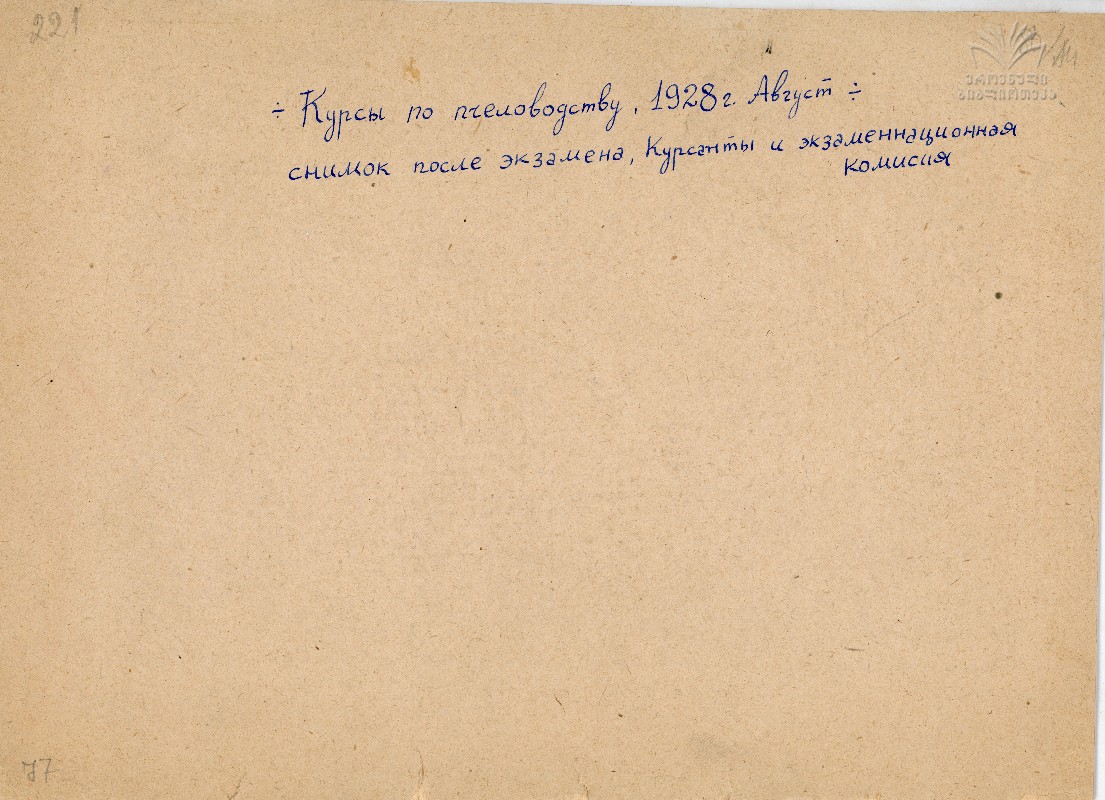 221
ეროვნული
ბიბლიოთეკა
÷ Курсы по пчеловодству, 1928 г. Август ÷
снимок после экзамена, Курсанты и экзаменнационная
комисия
77